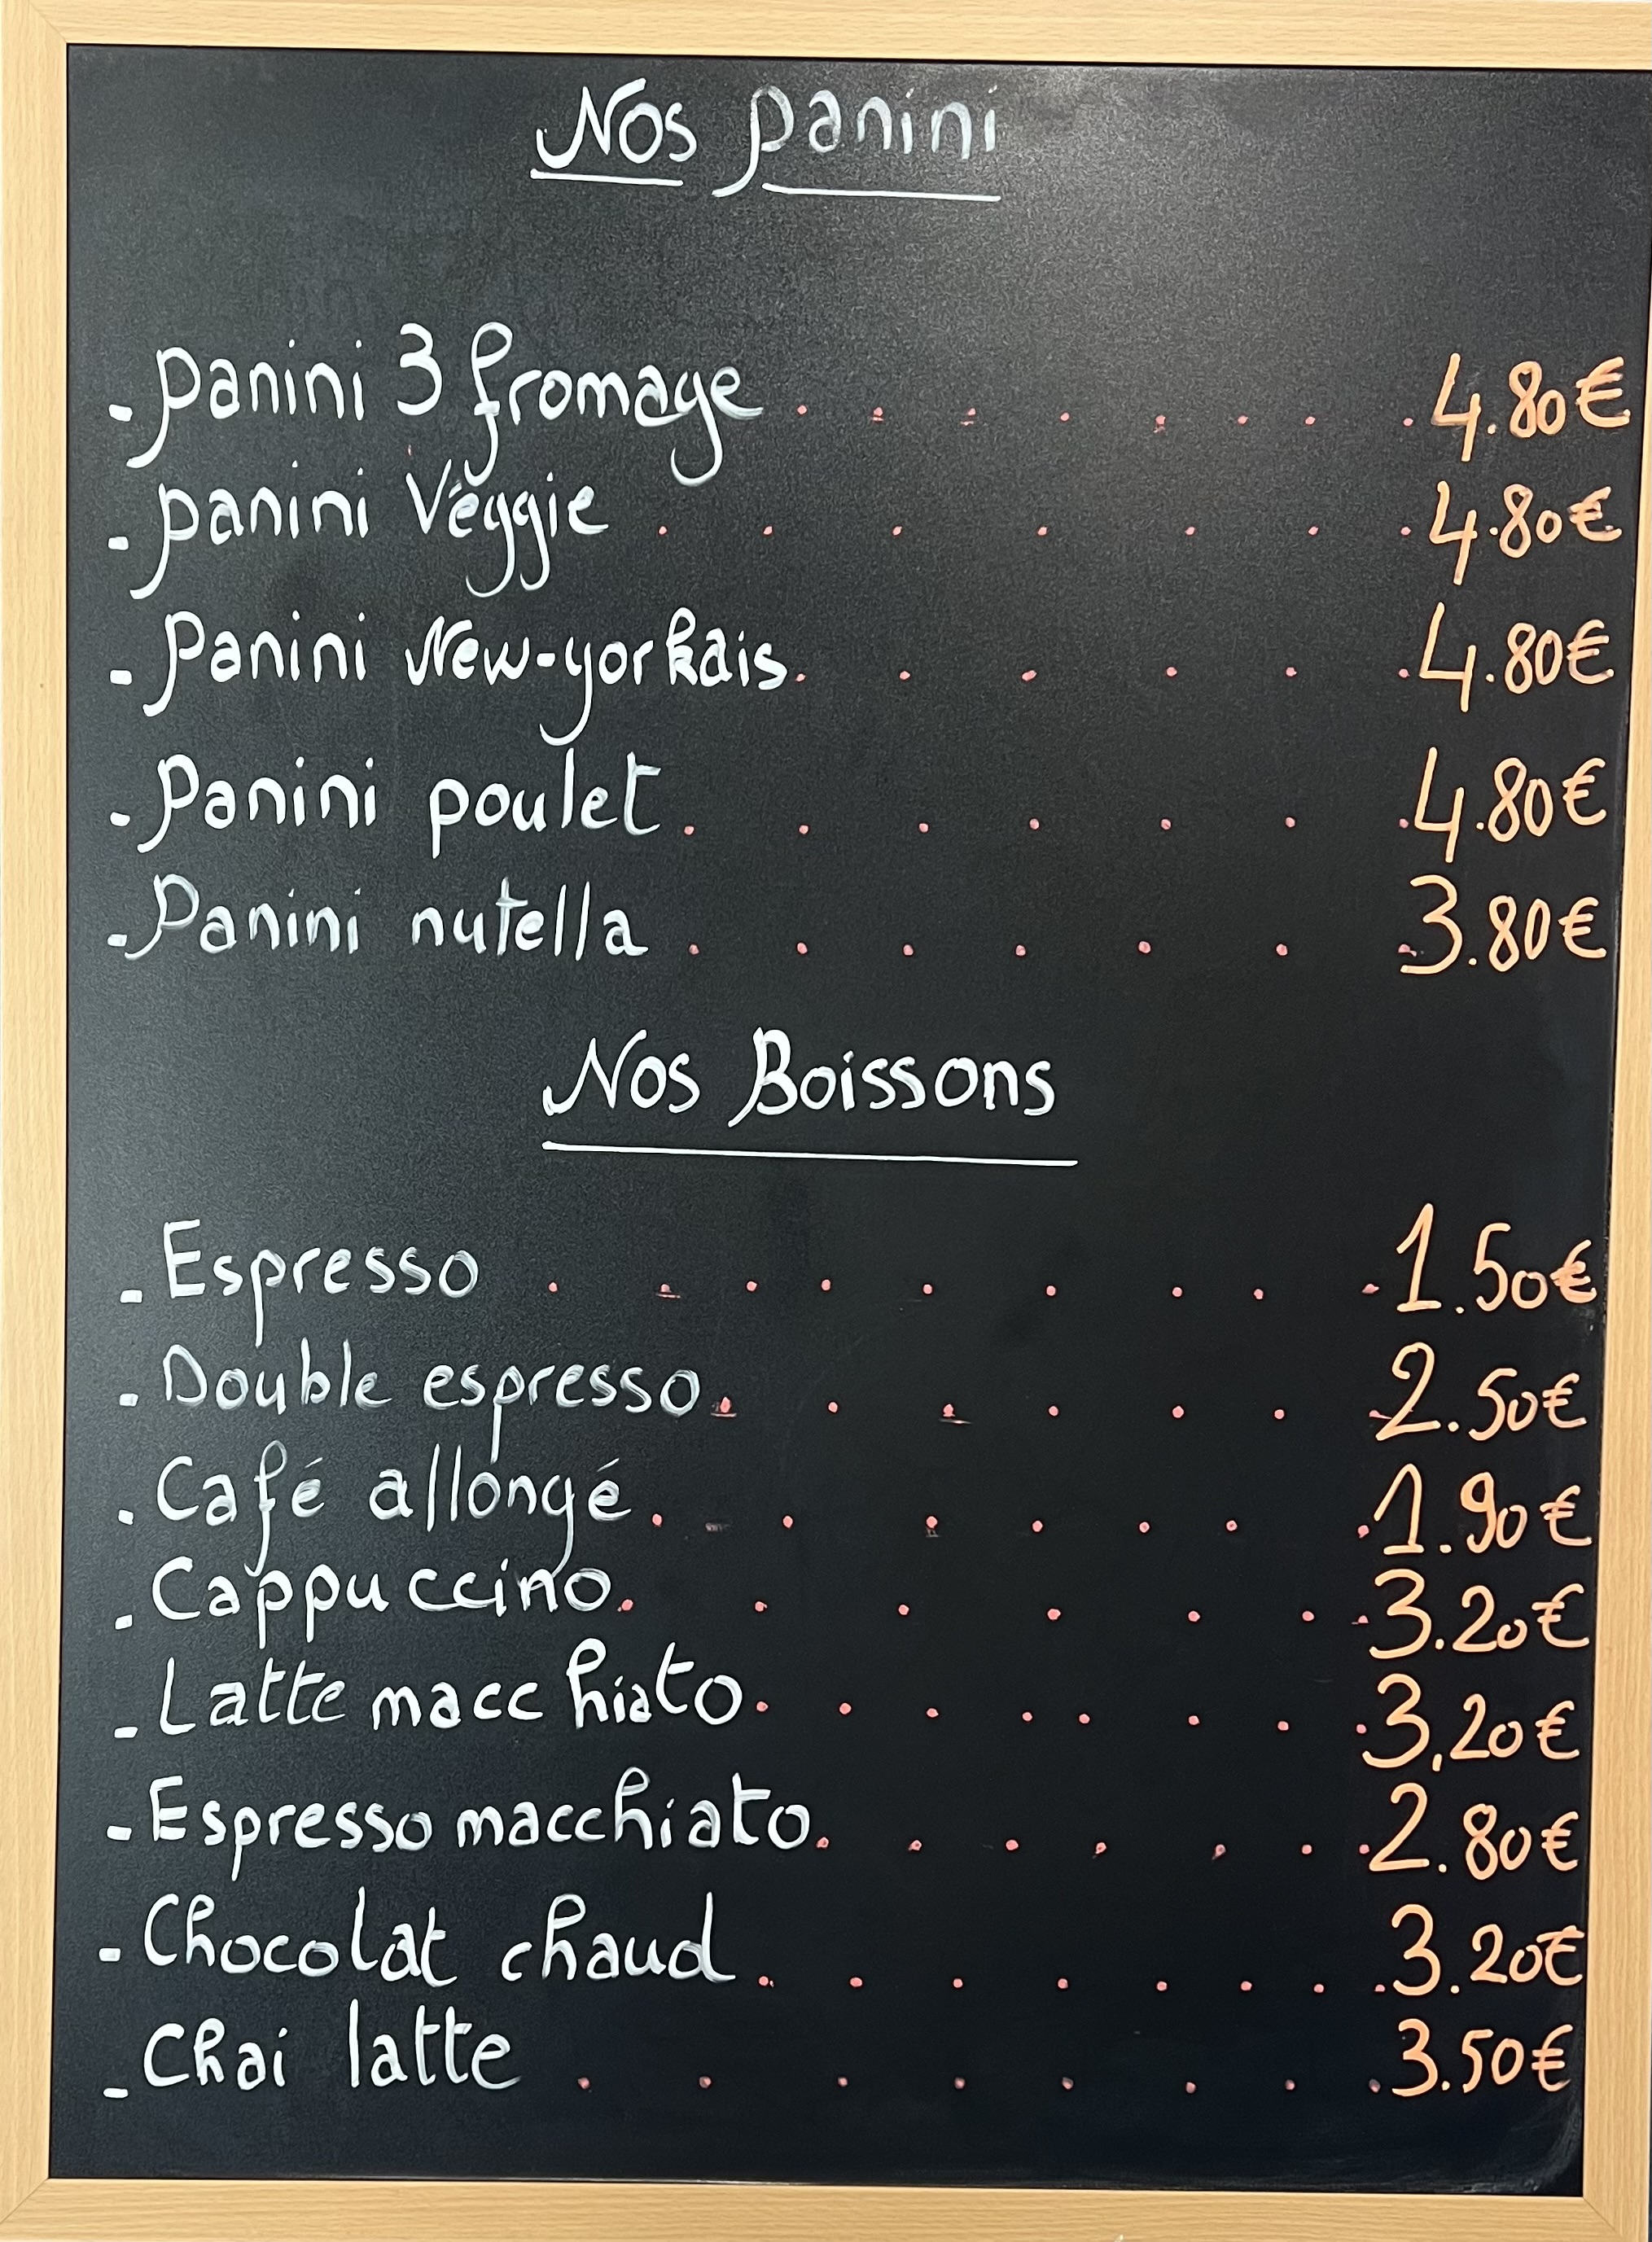 Nos panini
- panini 3 fromage . . . . . . . . 4.80€
- panini Véggie . . . . . . . 4.80€
- Panini New-yorkais . . . . . . 4.80€
- Panini poulet . . . . . . . 4.80€
- Panini nutella . . . . . . . 3.80€
Nos Boissons
- Espresso . . . . . . . . . 1.50€
- Double espresso . . . . . . . 2.50€
- Café allongé . . . . . . . 1.90€
- Cappuccino . . . . . . . 3.20€
- Latte macchiato . . . . . . . . 3,20€
- Espresso macchiato . . . . . . . 2.80€
- Chocolat chaud . . . . . . . . 3.20€
- Chai latte . . . . . . . . 3.50€